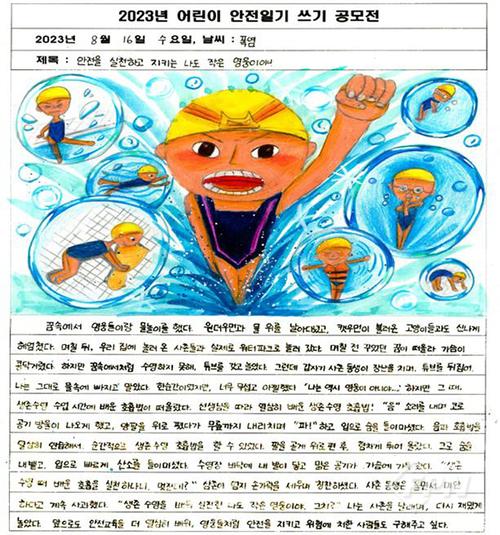 2023년 어린이 안전일기 쓰기 공모전
2023년 8월 16일 수요일, 날씨 : 폭염
제목 : 안전을 실천하고 지키는 나도 작은 영웅이야!
꿈속에서 영웅들이랑 물놀이를 했다. 원더우먼과 물 위를 날아다녔고, 캣우먼이 불러온 고양이들과도 신나게
헤엄쳤다. 며칠 뒤, 우리 집에 놀러 온 사촌들과 실제로 워터파크로 놀러 갔다. 며칠 전 꾸었던 꿈이 떠올라 가슴이
콩닥거렸다. 하지만 꿈속에서처럼 수영하지 못해, 튜브를 갖고 놀았다. 그런데 갑자기 사촌 동생이 장난을 치며, 튜브를 뒤집어,
나는 그대로 물속에 빠지고 말았다. 한순간이었지만, 너무 무섭고 아찔했다. '나는 역시 영웅이 아니야...' 하지만 그 때,
생존수영 수업 시간에 배운 호흡법이 떠올랐다. 선생님을 따라 열심히 배운 생존수영 호흡법! "음" 소리를 내며 코로
공기 방울이 나오게 하고, 양팔을 위로 폈다가 무릎까지 내리치며 "파!"하고 입으로 숨을 들이마셨다. 음파 호흡법을
열심히 연습해서, 순간적으로 생존수영 호흡법을 할 수 있었다. 팔을 곧게 위로 편 후, 힘차게 튀어 올랐다. 코로 숨을
내뱉고, 입으로 빠르게 산소를 들이마셨다. 수영장 바닥에 내 발이 닿고 맑은 공기가 가슴에 가득 찼다. "생존
수영 때 배운 호흡을 실천하다니, 멋진데?" 삼촌이 엄지 손가락을 세우며 칭찬하셨다. 사촌 동생은 울면서 미안
하다고 계속 사과했다. "생존 수영을 배워 실천한 나도 작은 영웅이야. 그치?" 나는 사촌을 달래며, 다시 재밌게
놀았다. 앞으로도 안전교육을 더 열심히 배워, 영웅들처럼 안전을 지키고 위험에 처한 사람들도 구해주고 싶다.